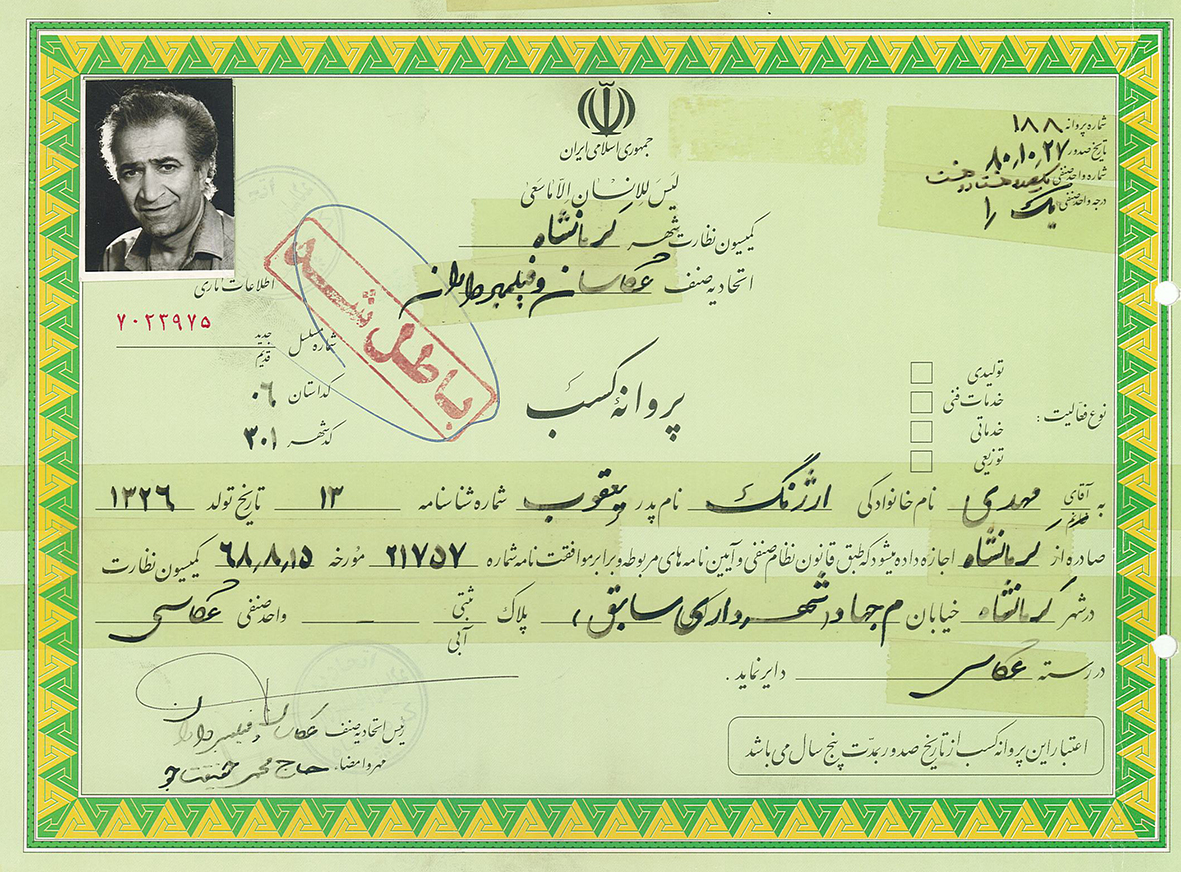 جمهوری اسلامی ایران
لیس للانسان الا ماسعی
شماره پروانه ۱۸۸
تاریخ صدور ۸۰٫۱۰٫۲۷
شماره واحد صنفی یکصد و هشتاد و هشت
درجه واحد صنفی یک ۱
کمیسیون نظارت شهر کرمانشاه
اتحادیه صنف عکاسان و فیلمبرداران
اطلاعات آماری
۷۰۲۳۹۷۵
شماره مسلسل جدید قدیم
کد استان ۰۶
کد شهر ۳۰۱
باطل شد
پروانه کسب
نوع فعالیت :
تولیدی
خدمات فنی
خدماتی
توزیعی
به آقای خانم مهدی نام خانوادگی ارژنگ نام پدر یعقوب شماره شناسنامه ۱۳ تاریخ تولد ۱۳۲۶
صادره از کرمانشاه اجازه داده میشود که طبق قانون نظام صنفی و آیین نامه های مربوطه و برابر موافقت نامه شماره ۲۱۷۵۷ مورخه ۶۸٫۸٫۱۵ کمیسیون نظارت
در شهر کرمانشاه خیابان م جهاد (شهرداری سابق) پلاک ثبتی آبی – واحد صنفی عکاسی
در رسته عکاسی دایر نماید .
رئیس اتحادیه صنف عکاسان و فیلمبرداران
مهر و امضاء: حاج محمد
اعتبار این پروانه کسب از تاریخ صدور بمدّت پنج سال می باشد